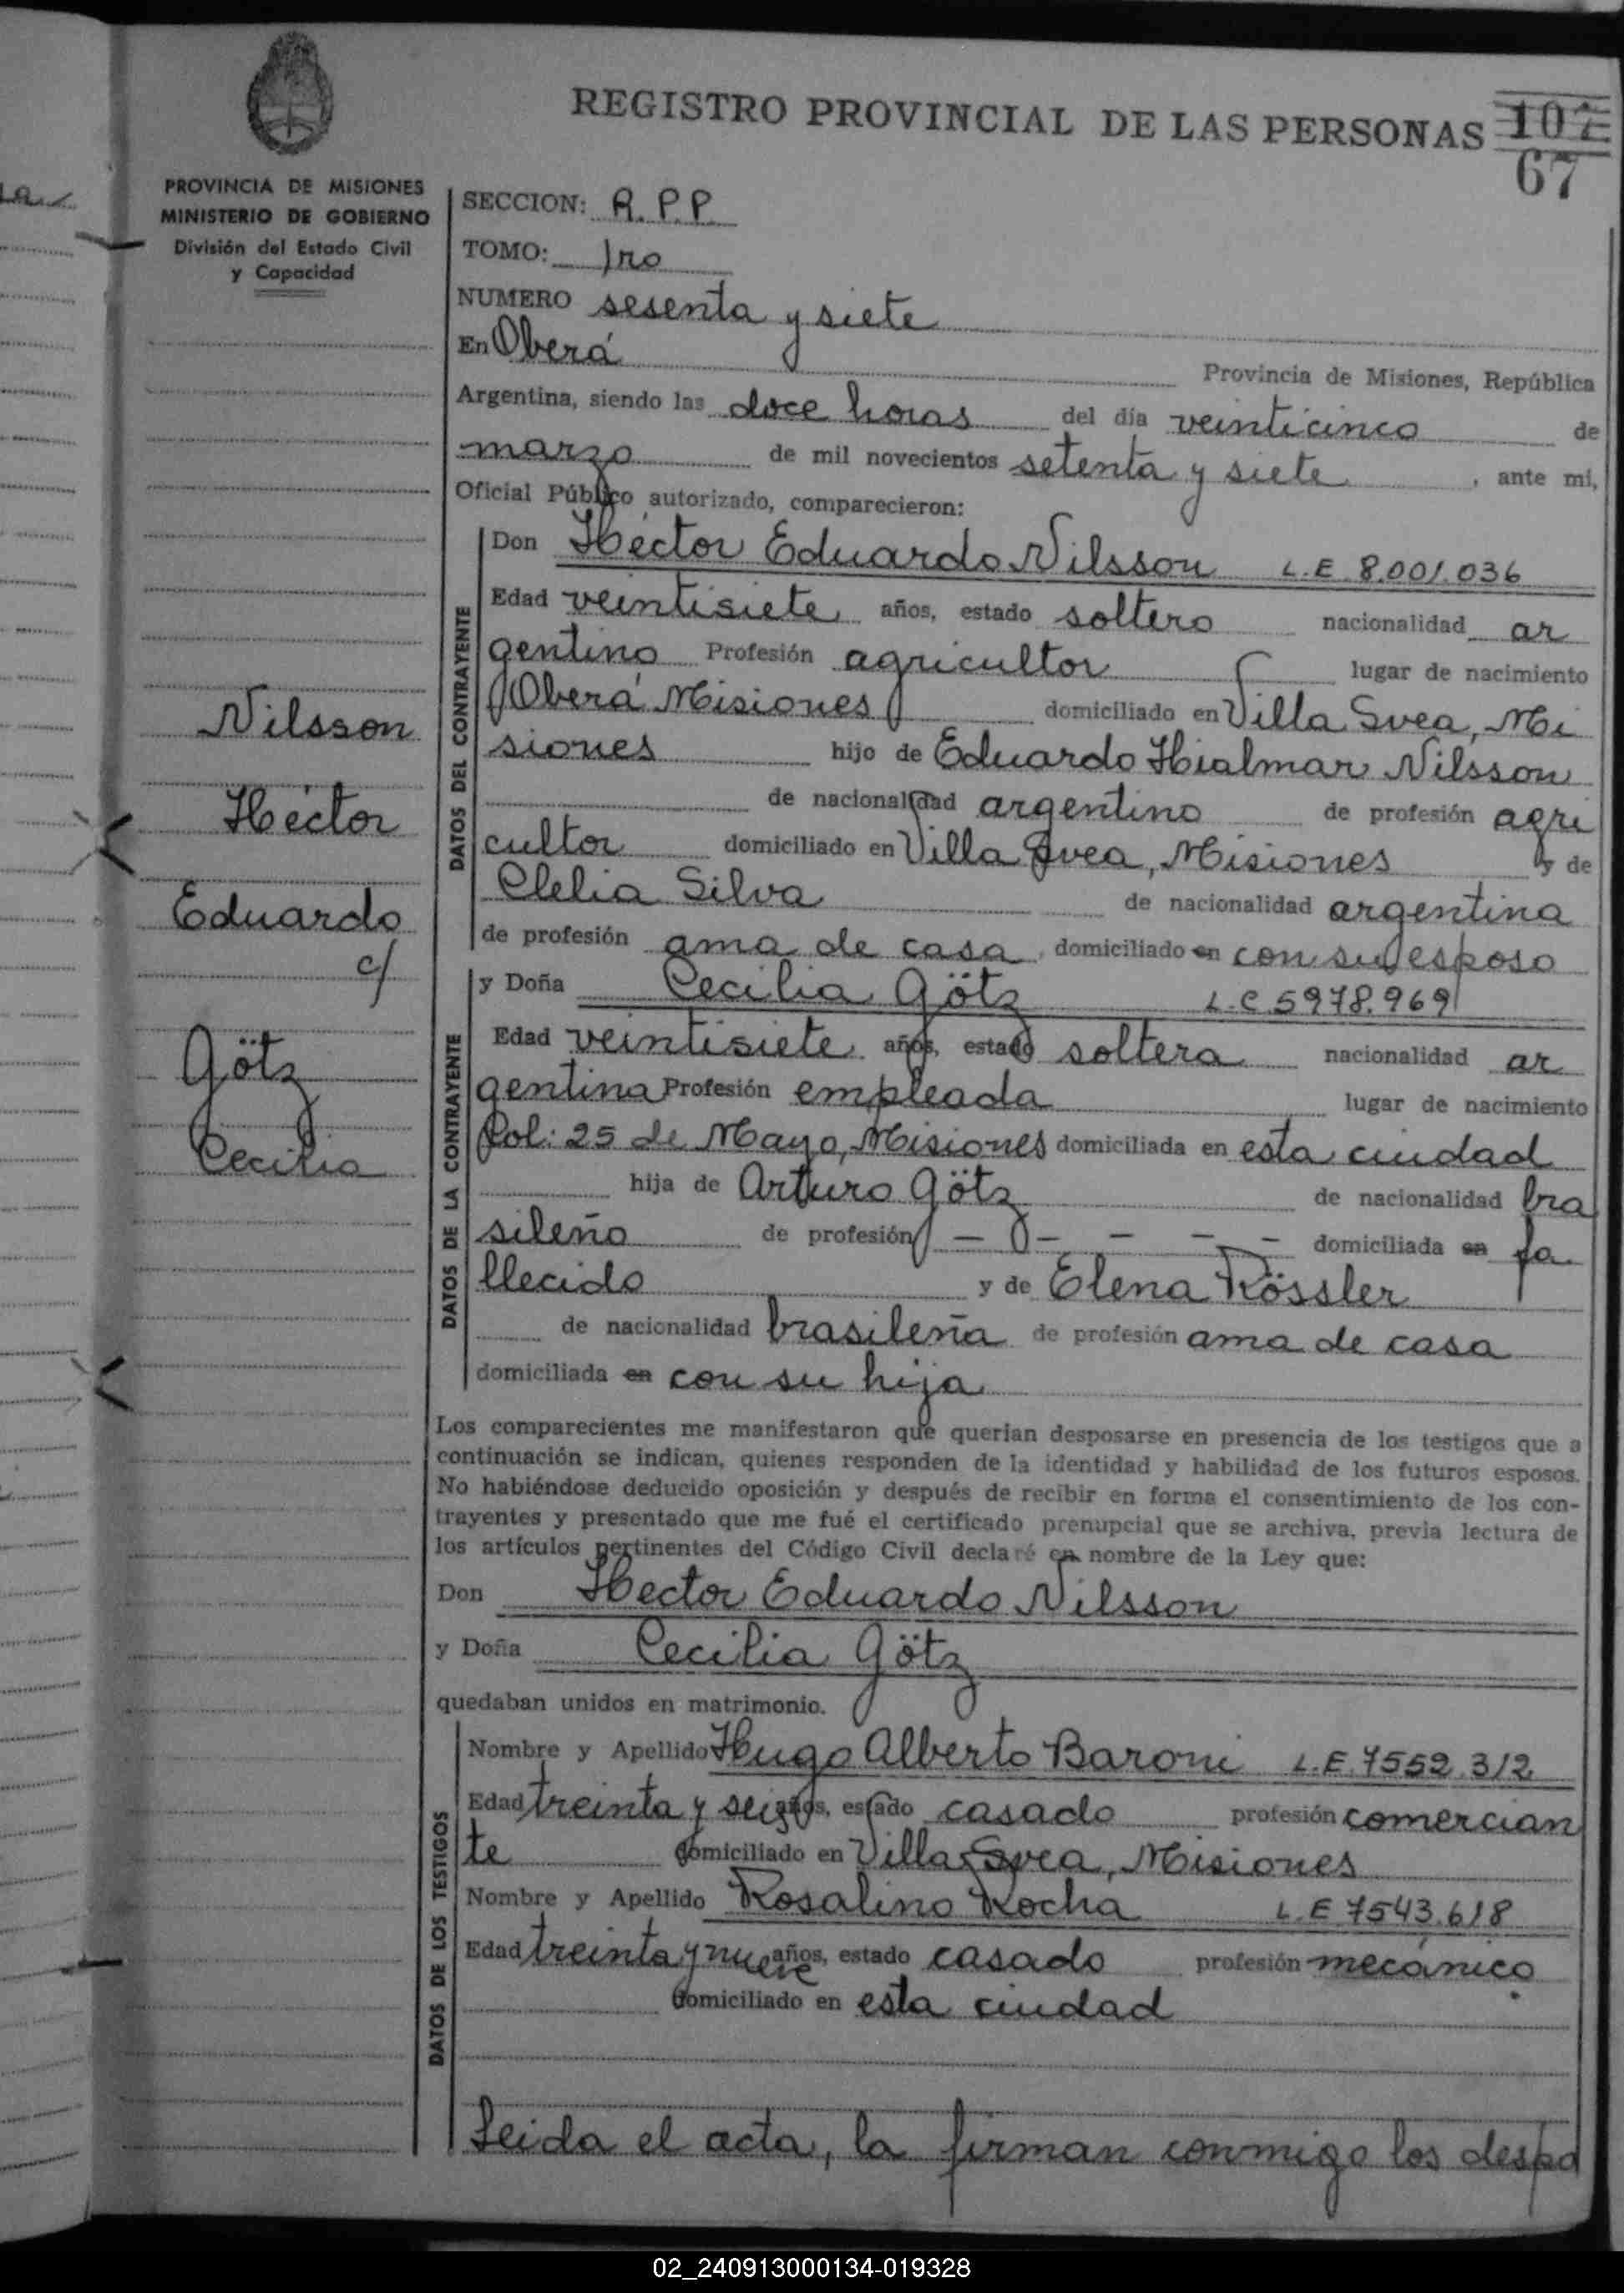 REGISTRO PROVINCIAL DE LAS PERSONAS 107
67
PROVINCIA DE MISIONES
MINISTERIO DE GOBIERNO
División del Estado Civil
y Capacidad
SECCION: R.P.P.
TOMO: 1ro
NUMERO sesenta y siete
En Oberá Provincia de Misiones, República
Argentina, siendo las doce horas del día veinticinco de
marzo de mil novecientos setenta y siete, ante mi,
Oficial Público autorizado, comparecieron:
DATOS DEL CONTRAYENTE
Don Héctor Eduardo Nilsson L.E 8.001.036
Edad veintisiete años, estado soltero nacionalidad ar
gentino Profesión agricultor lugar de nacimiento
Oberá Misiones domiciliado en Villa Svea, Mi
siones hijo de Eduardo Hialmar Nilsson
de nacionalidad argentino de profesión agri
cultor domiciliado en Villa Svea, Misiones y de
Clelia Silva de nacionalidad argentina
de profesión ama de casa, domiciliado en con su esposo
Nilsson
Héctor
Eduardo
c/
Götz
Cecilia
DATOS DE LA CONTRAYENTE
y Doña Cecilia Götz L.C 5978.969
Edad veintisiete años, estado soltera nacionalidad ar
gentina Profesión empleada lugar de nacimiento
Col: 25 de Mayo, Misiones domiciliada en esta ciudad
hija de Arturo Götz de nacionalidad bra
sileño de profesión - - - - - domiciliada en fa
llecido y de Elena Rössler
de nacionalidad brasileña de profesión ama de casa
domiciliada en con su hija
Los comparecientes me manifestaron que querían desposarse en presencia de los testigos que a
continuación se indican, quienes responden de la identidad y habilidad de los futuros esposos.
No habiéndose deducido oposición y después de recibir en forma el consentimiento de los con-
trayentes y presentado que me fué el certificado prenupcial que se archiva, previa lectura de
los artículos pertinentes del Código Civil declaré en nombre de la Ley que:
Don Hector Eduardo Nilsson
y Doña Cecilia Götz
quedaban unidos en matrimonio.
DATOS DE LOS TESTIGOS
Nombre y Apellido Hugo Alberto Baroni L.E. 7552.312
Edad treinta y seis años, estado casado profesión comercian
te domiciliado en Villa Svea, Misiones
Nombre y Apellido Rosalino Rocha L.E 7543.618
Edad treinta y nueve años, estado casado profesión mecánico
domiciliado en esta ciudad
Leida el acta, la firman conmigo los despo
02_240913000134-019328